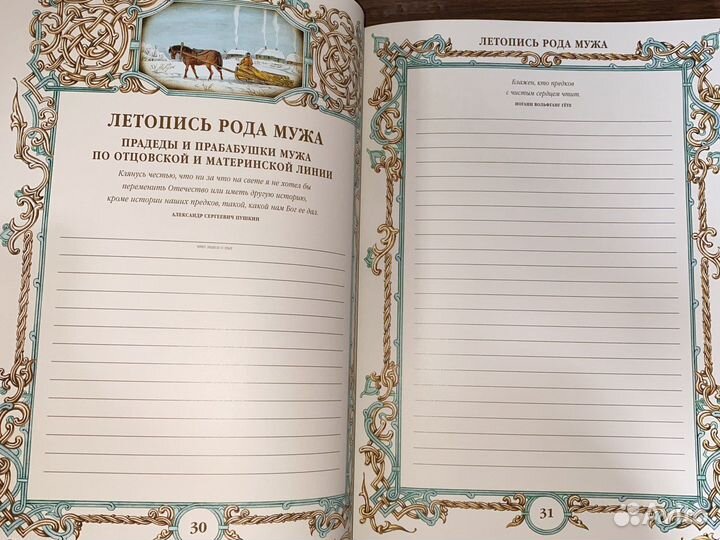 ЛЕТОПИСЬ РОДА МУЖА
ПРАДЕДЫ И ПРАБАБУШКИ МУЖА
ПО ОТЦОВСКОЙ И МАТЕРИНСКОЙ ЛИНИИ
Клянусь честью, что ни за что на свете я не хотел бы
переменить Отечество или иметь другую историю,
кроме истории наших предков, такой, какой нам Бог ее дал.
АЛЕКСАНДР СЕРГЕЕВИЧ ПУШКИН
30
ЛЕТОПИСЬ РОДА МУЖА
Блажен, кто предков
с чистым сердцем чтит.
ИОГАНН ВОЛЬФГАНГ ГЁТЕ
31
Avito